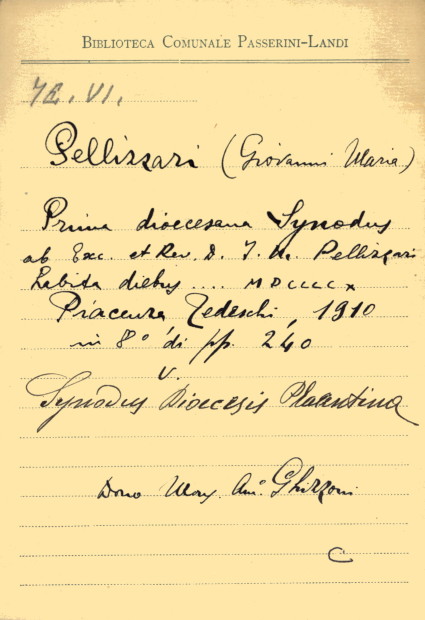 BIBLIOTECA COMUNALE PASSERINI-LANDI
7E.VI.
Pellizzari (Giovanni Maria)
Prima dioecesana Synodus
ab Exc. et Rev. D. J. M. Pellizzari
habita diebus .... MDCCCCX
Piacenza, Tedeschi, 1910
in 8° di pp. 240
V.
Synodus Dioecesis Placentina
Dono Mons. Ant. Ghizzoni
C